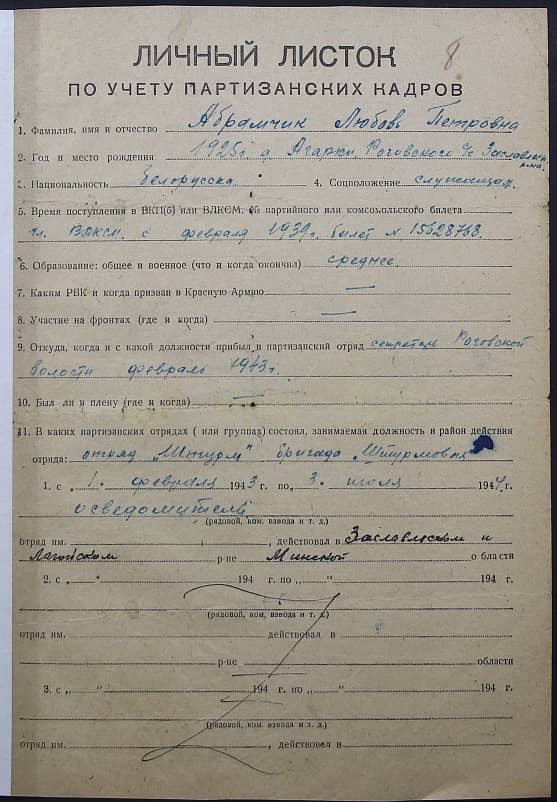 8
ЛИЧНЫЙ ЛИСТОК
ПО УЧЕТУ ПАРТИЗАНСКИХ КАДРОВ
1. Фамилия, имя и отчество Абрамчик Любовь Петровна
2. Год и место рождения 1925г. д Агарки Роговского с/с Заславльск.
р-на.
3. Национальность белорусска. 4. Соцположение служащая.
5. Время поступления в ВКП(б) или ВЛКСМ. № партийного или комсомольского билета
чл. ВЛКСМ. с февраля 1939г. билет № 15628768.
6. Образование: общее и военное (что и когда окончил) среднее.
7. Каким РВК и когда призван в Красную Армию —
8. Участие на фронтах (где и когда) —
9. Откуда, когда и с какой должности прибыл в партизанский отряд секретарь Роговской
волости февраль 1943г.
10. Был ли в плену (где и когда) —
11. В каких партизанских отрядах (или группах) состоял, занимаемая должность и район действия
отряда: отряд „Штурм" бригада „Штурмовая"
1. с „1. февраля 1943 г. по „3. июля 1944 г.
осведомитель
(рядовой, ком. взвода и т. д.)
отряд им. , действовал в Заславльском и
Лагойском р-не Минской области
2. с „ " 194 г. по „ " 194 г.
(рядовой, ком. взвода и т. д.)
отряд им. действовал в
р-не области
3. с „ " 194 г. по „ " 194 г.
(рядовой, ком. взвода и т. д.)
отряд им. , действовал в